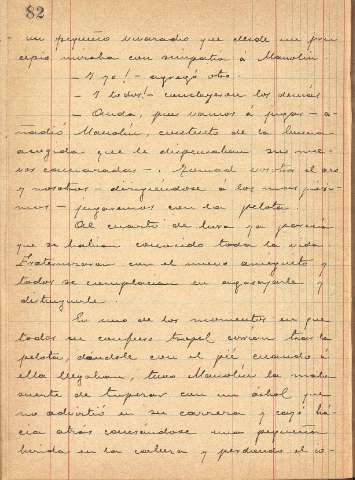 82
un pequeño vivaracho que desde un prin
cipio miraba con simpatia á Manolin
— I yo! — agregó otro.
— I todos! — concluyeron los demás
— Anda, pues vamos á jugar — a-
ñadió Manolin, contento de la buena
acogida que le dispensaban sus nue
vos camaradas —. Tomad vosotros el aro
y nosotros — dirigiéndose á los mas próxi-
mos — jugaremos con la pelota.
Al cuarto de hora ya parecia
que se habian conocido toda la vida.
Fraternizaron con el nuevo amiguito y
todos se complacian en agasajarle y
distinguirle.
En uno de los momentos en que
todos en confuso tropel corrian tras la
pelota, dándole con el pié cuando á
ella llegaban, tuvo Manolin la mala
suerte de tropezar con un árbol que
no advirtió en su carrera y cayó há-
cia atras causándose una pequeña
herida en la cabeza y perdiendo el co-